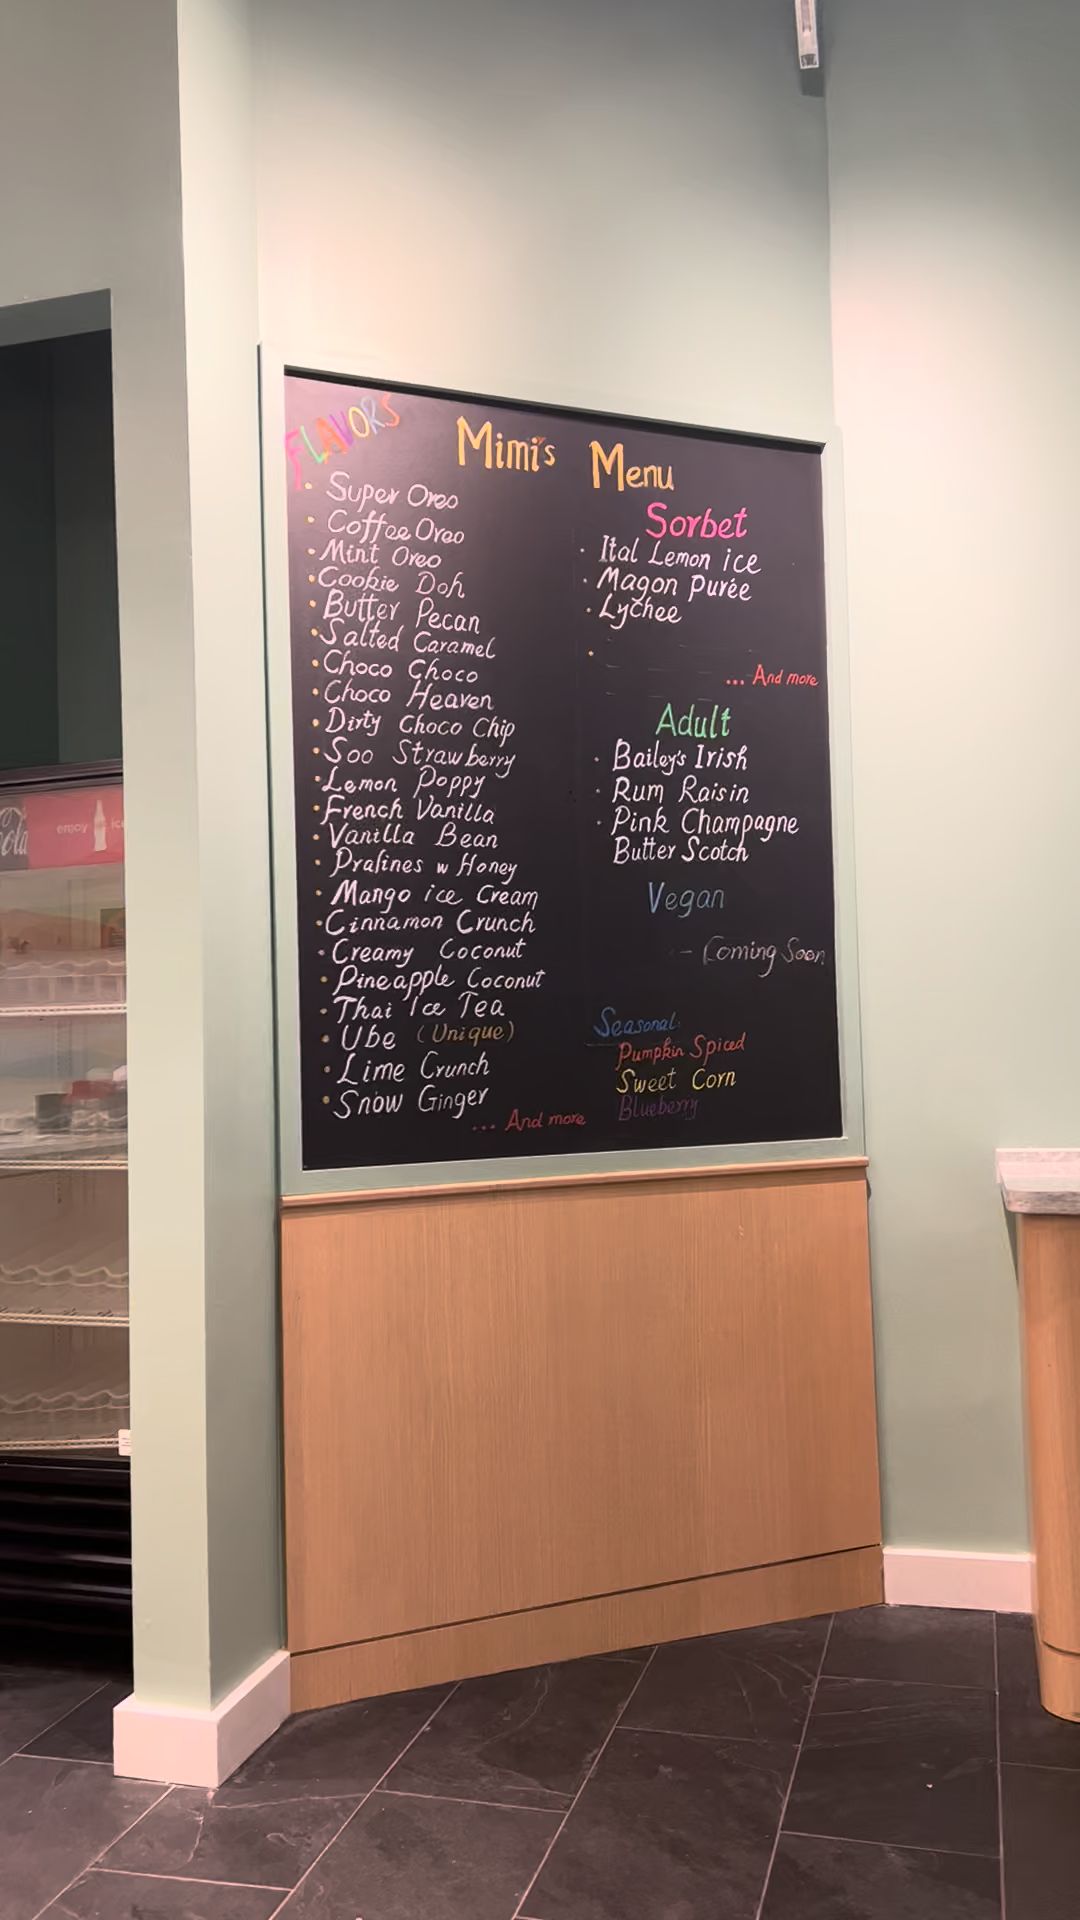 FLAVORS
Mimi's Menu
Super Oreo
Coffee Oreo
Mint Oreo
Cookie Doh
Butter Pecan
Salted Caramel
Choco Choco
Choco Heaven
Dirty Choco Chip
Soo Strawberry
Lemon Poppy
French Vanilla
Vanilla Bean
Pralines w Honey
Mango ice Cream
Cinnamon Crunch
Creamy Coconut
Pineapple Coconut
Thai Ice Tea
Ube (Unique)
Lime Crunch
Snow Ginger
... And more
Sorbet
Ital Lemon ice
Magon Purée
Lychee
... And more
Adult
Bailey's Irish
Rum Raisin
Pink Champagne
Butter Scotch
Vegan
- Coming Soon
Seasonal:
Pumpkin Spiced
Sweet Corn
Blueberry
enjoy